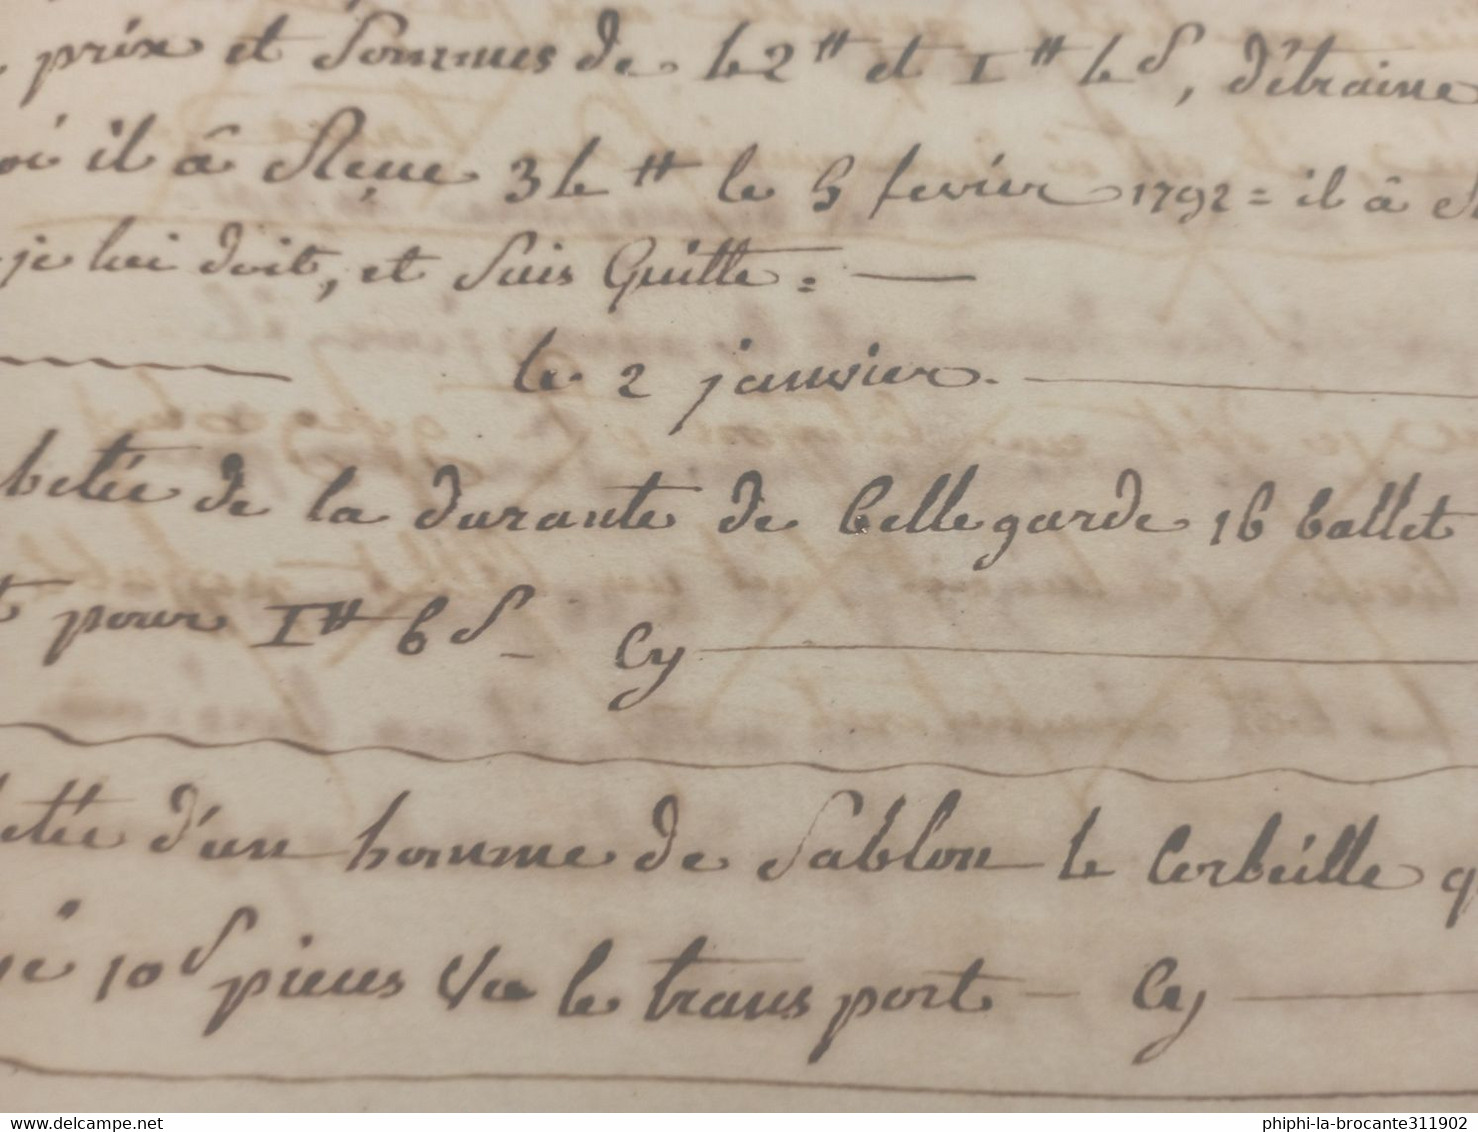 prix et Sommes de le 2 ₶ et I ₶ le s, d'étraine
il â Reçue 3 le ₶ le 5 fevrier 1792 = il â
je lui doit, et Suis Quitte =
le 2 janvier.
betée de la durante de bellegarde 16 ballet
pour I ₶ 6 s - Cy
etée d'un homme de Sablon le Corbeille
10 s pieces Vu le transport - Cy
www.delcampe.net
phiphi-la-brocante311902